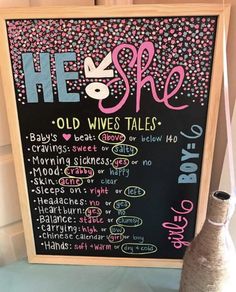 HE OR She
• OLD WIVES TALES •
• Baby's ♥ beat: above or below 140
• Cravings: sweet or salty
• Morning sickness: yes or no
• Mood: crabby or happy
• Skin: acne or clear
• Sleeps on: right or left
• Headaches: no or yes
• Heartburn: yes or no
• Balance: stable or clumsy
• Carrying: high or low
• Chinese calendar: girl or boy
• Hands: soft + warm or dry + cold
BOY=6
girl=6